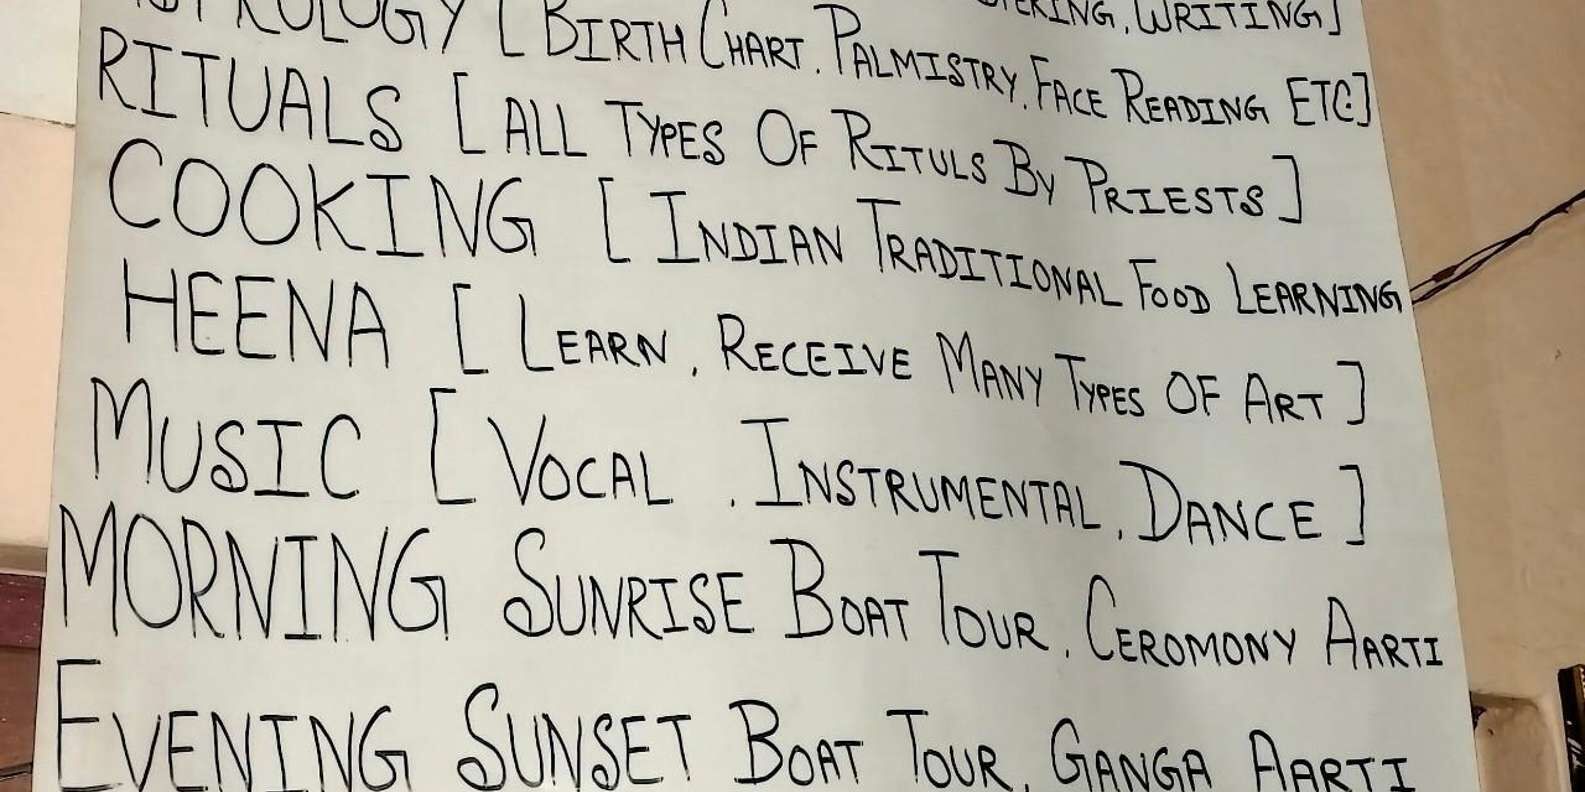 WRITING]
[BIRTH CHART, PALMISTRY, FACE READING ETC]
RITUALS [ALL TYPES OF RITULS BY PRIESTS]
COOKING [INDIAN TRADITIONAL FOOD LEARNING
HEENA [LEARN, RECEIVE MANY TYPES OF ART]
MUSIC [VOCAL, INSTRUMENTAL, DANCE]
MORNING SUNRISE BOAT TOUR, CEROMONY AARTI
EVENING SUNSET BOAT TOUR, GANGA AARTI